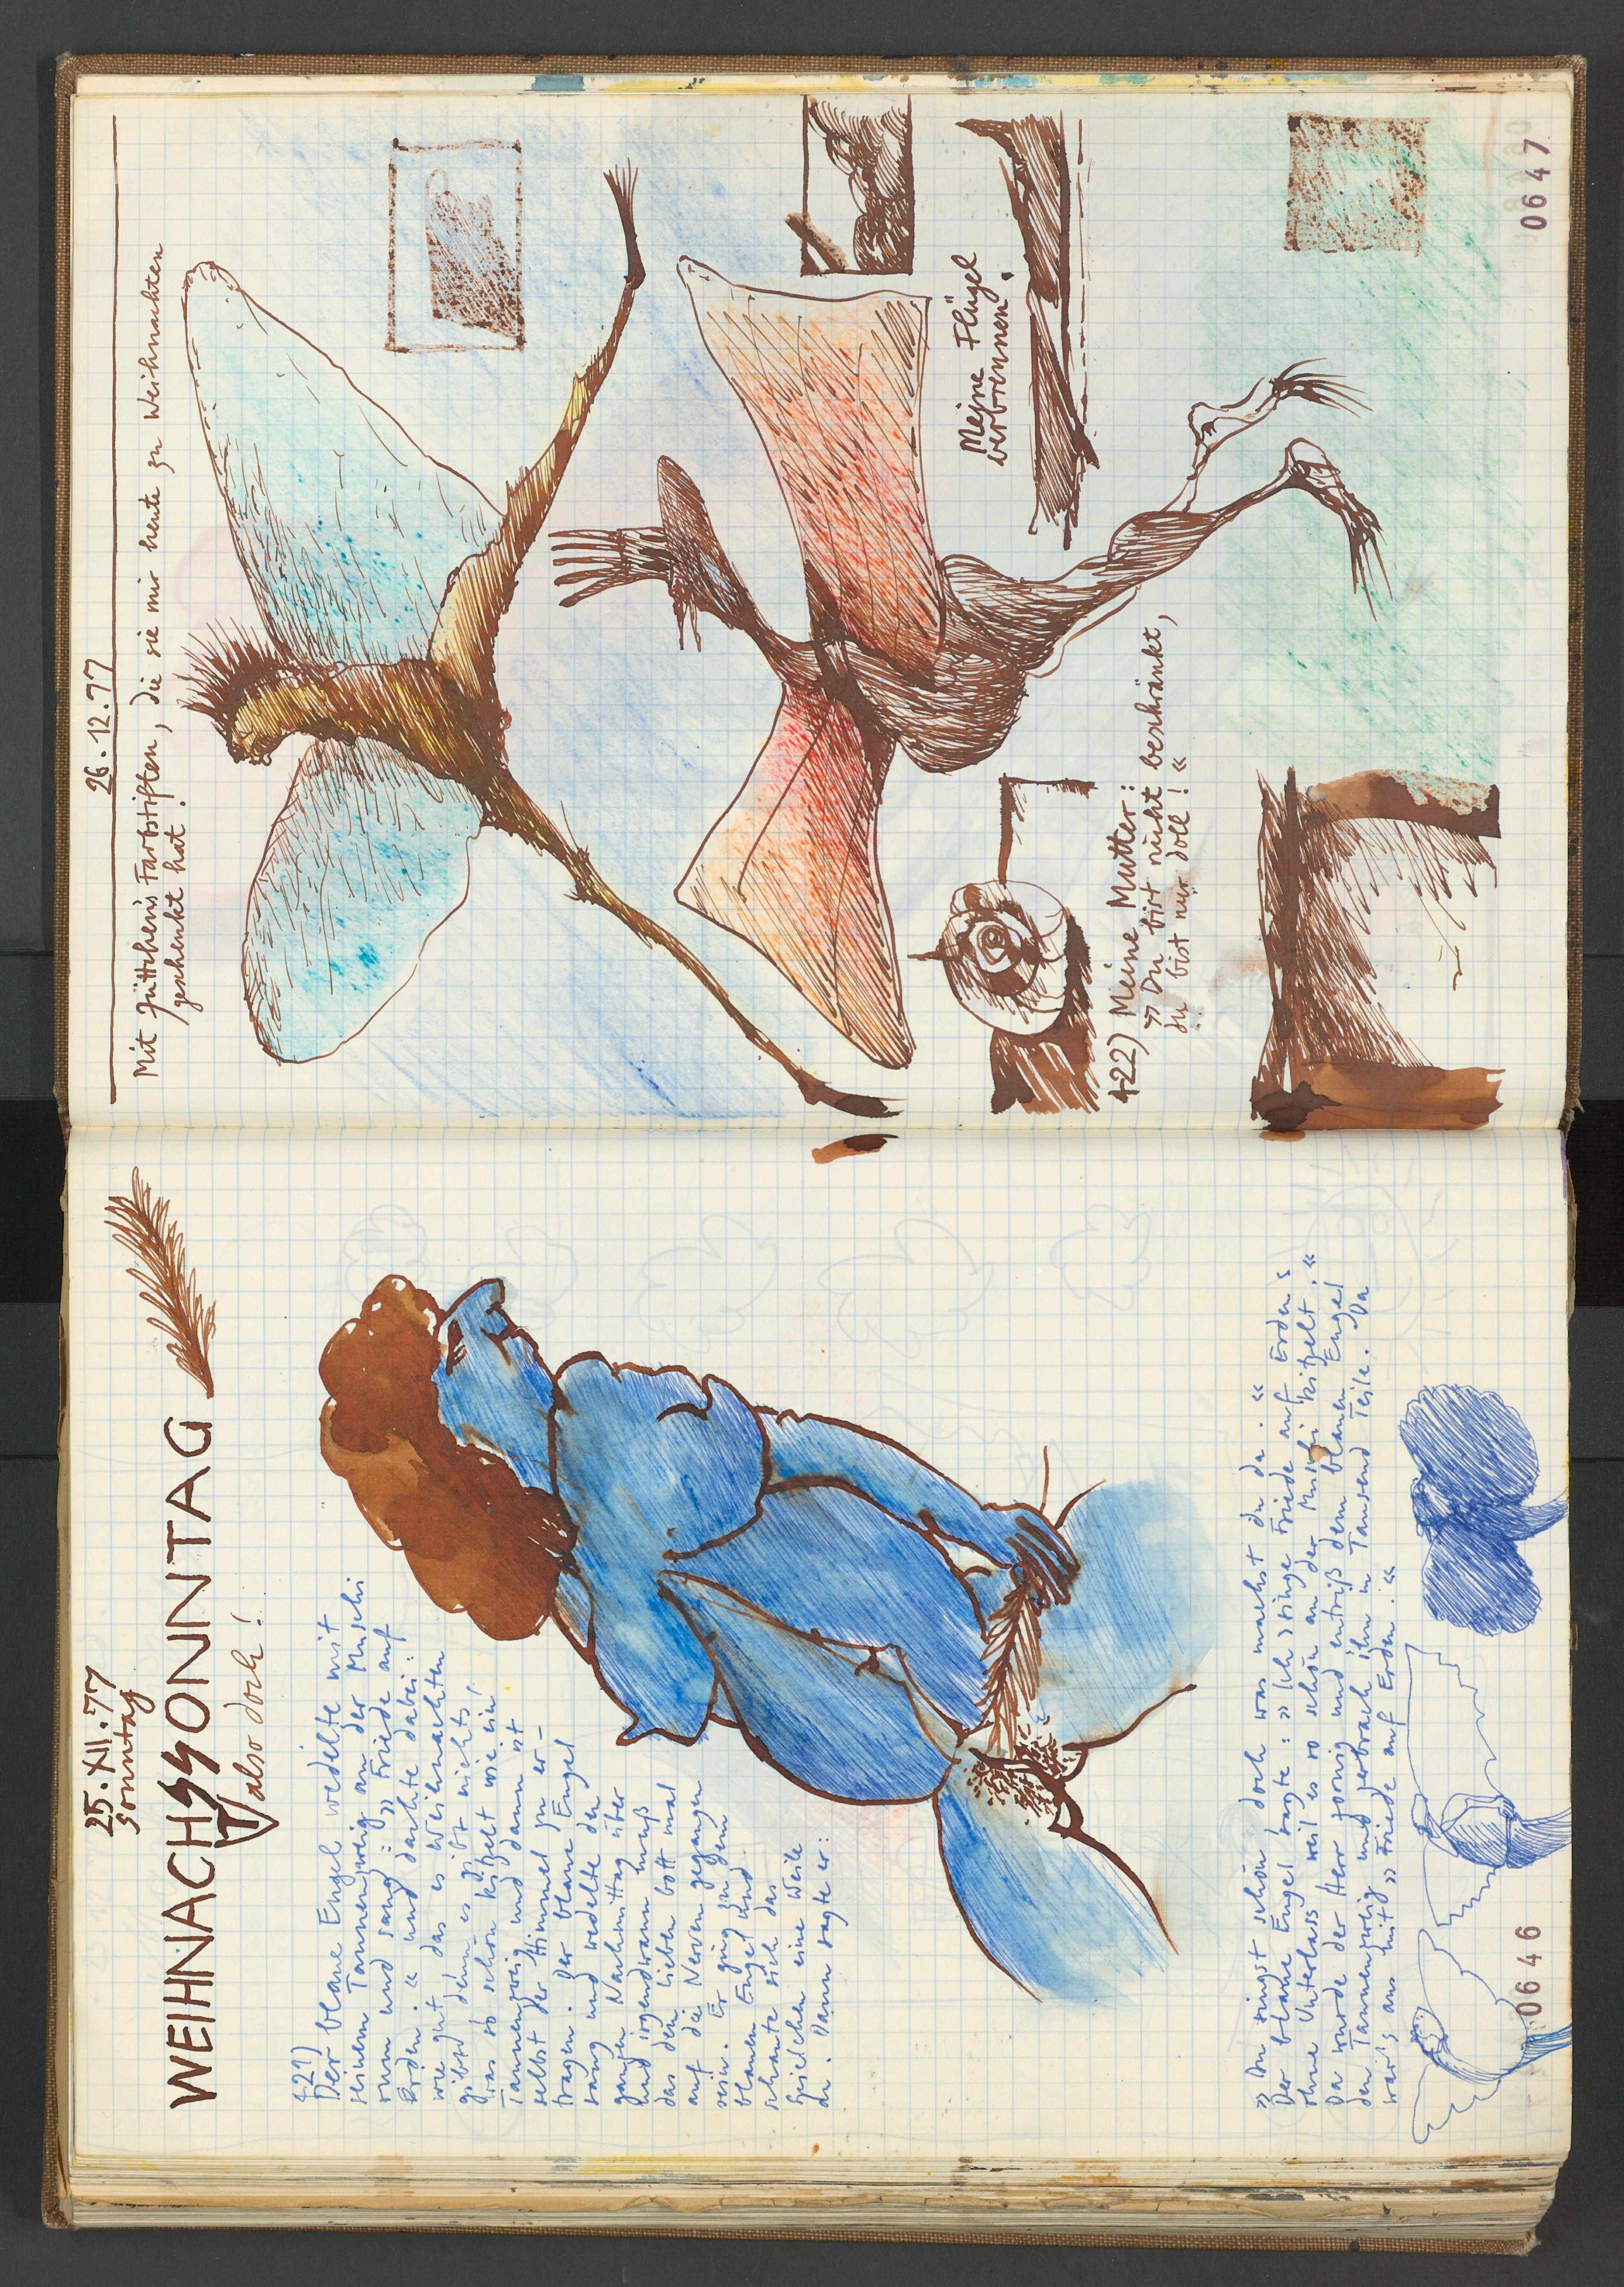 25.XII.77
Sonntag
WEIHNACHSSONNTAG
T also doch!
421)
Der blaue Engel wedelte mit
seinem Tannenzweig an der Muschi
rum und sang: »Friede auf
Erden.« und dachte dabei:
wie gut das es Weihnachten
gibt denn es gibt nichts
was so schön kitzelt wie ein
Tannenzweig und dann ist
selbst der Himmel zu er-
tragen. Der blaue Engel
sang und wedelte den
ganzen Nachmittag über
und irgendwann muß
das dem lieben Gott mal
auf die Nerven gegangen
sein. Er ging zu dem
blauen Engel und
schaute sich das
Spielchen eine Weile
an. Dann sagte er:
»Du singst schön doch was machst du da.«
Der blaue Engel sagte: »Ich singe Friede auf Erden
ohne Unterlass weil es so schön an der Muschi kitzelt.«
Da wurde der Herr zornig und entriß dem blauen Engel
den Tannenzweig und zerbrach ihn in Tausend Teile. Da
war's aus mit »Friede auf Erden.«
0646
26.12.77
Mit Jüttchens Farbstiften, die sie mir heute zu Weihnachten
geschenkt hat.
Meine Flügel
verbrennen.
422) Meine Mutter:
»Du bist nicht beschränkt,
du bist nur doll!«
0647